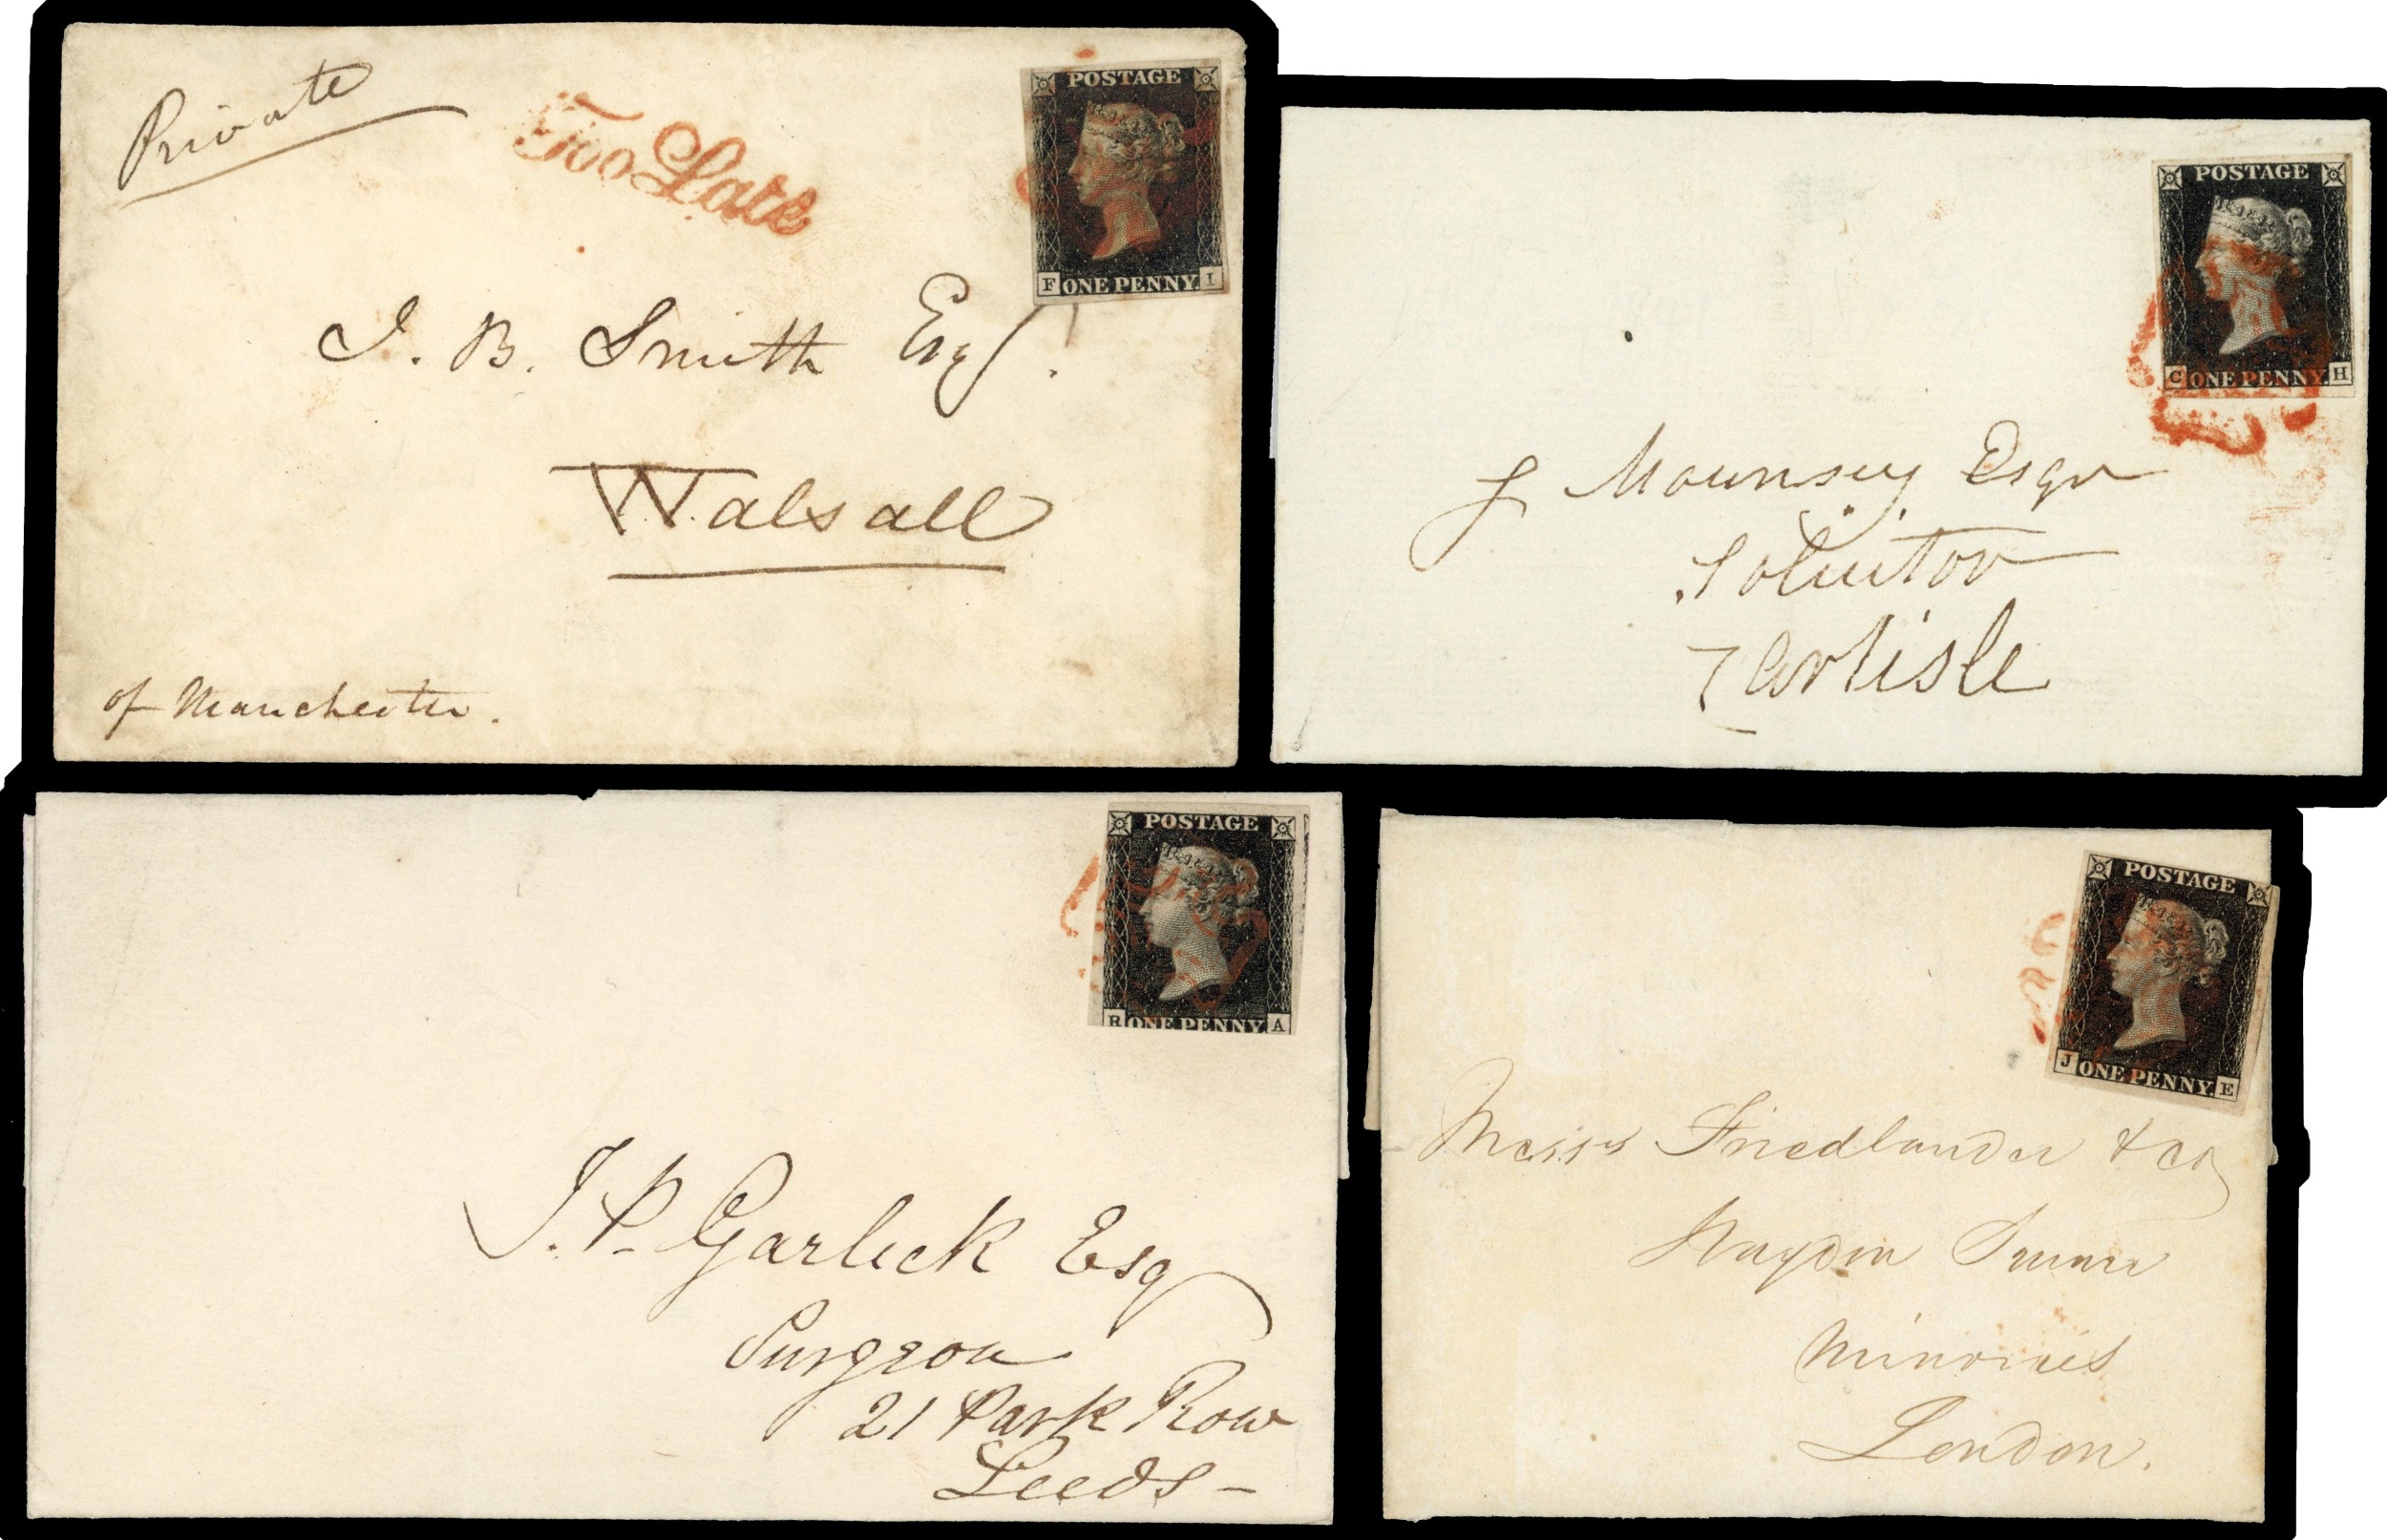 Private
Too Late
POSTAGE
F ONE PENNY. I
J. B. Smith Esq.
Walsall
of Manchester.
POSTAGE
C ONE PENNY. H
Mounsey Esqr
Solicitor
Carlisle
POSTAGE
R ONE PENNY. A
J. P. Garlick Esq
Surgeon
21 Park Row
Leeds
POSTAGE
J ONE PENNY. E
Messrs Friedlander & Co
Haydon Square
Minories
London.